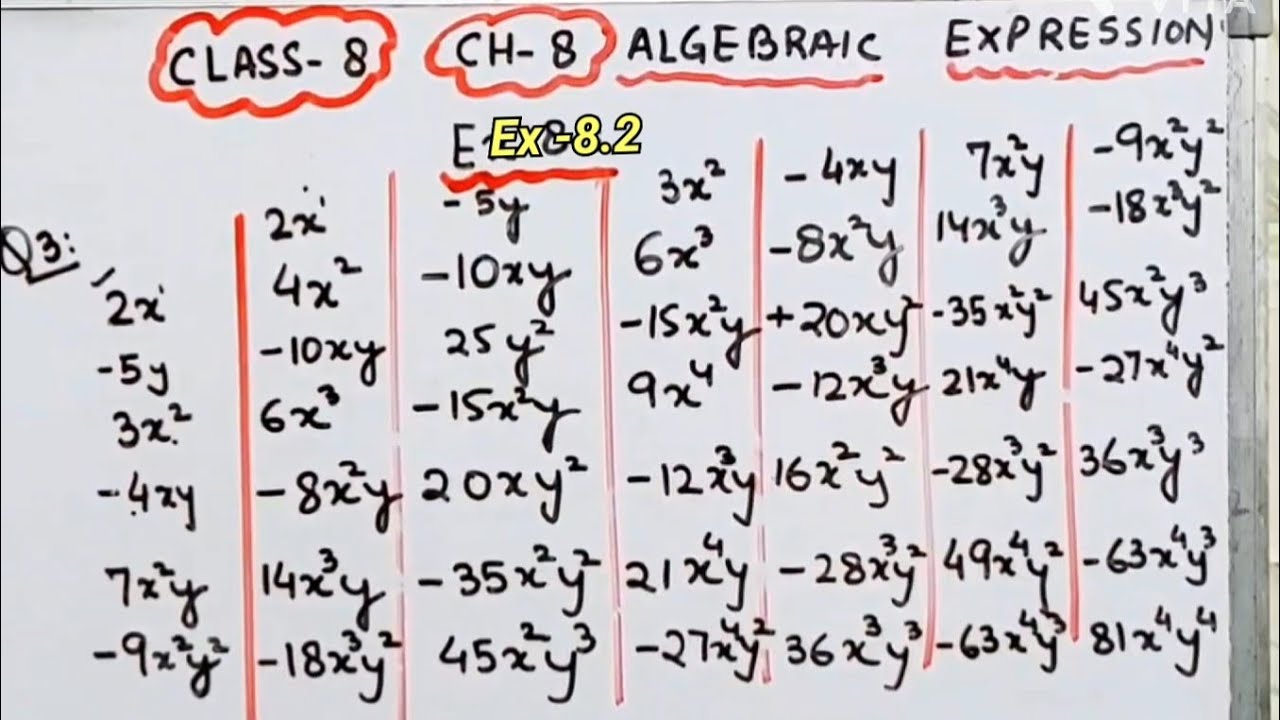 CLASS-8 CH-8 ALGEBRAIC EXPRESSION
Ex-8.2
Q3:
2x -5y 3x² -4xy 7x²y -9x²y²
2x 4x² -10xy 6x³ -8x²y 14x³y -18x³y²
-5y -10xy 25y² -15x²y +20xy² -35x²y² 45x²y³
3x² 6x³ -15x²y 9x⁴ -12x³y 21x⁴y -27x⁴y²
-4xy -8x²y 20xy² -12x³y 16x²y² -28x³y² 36x³y³
7x²y 14x³y -35x²y² 21x⁴y -28x³y² 49x⁴y² -63x⁴y³
-9x²y² -18x³y² 45x²y³ -27x⁴y² 36x³y³ -63x⁴y³ 81x⁴y⁴